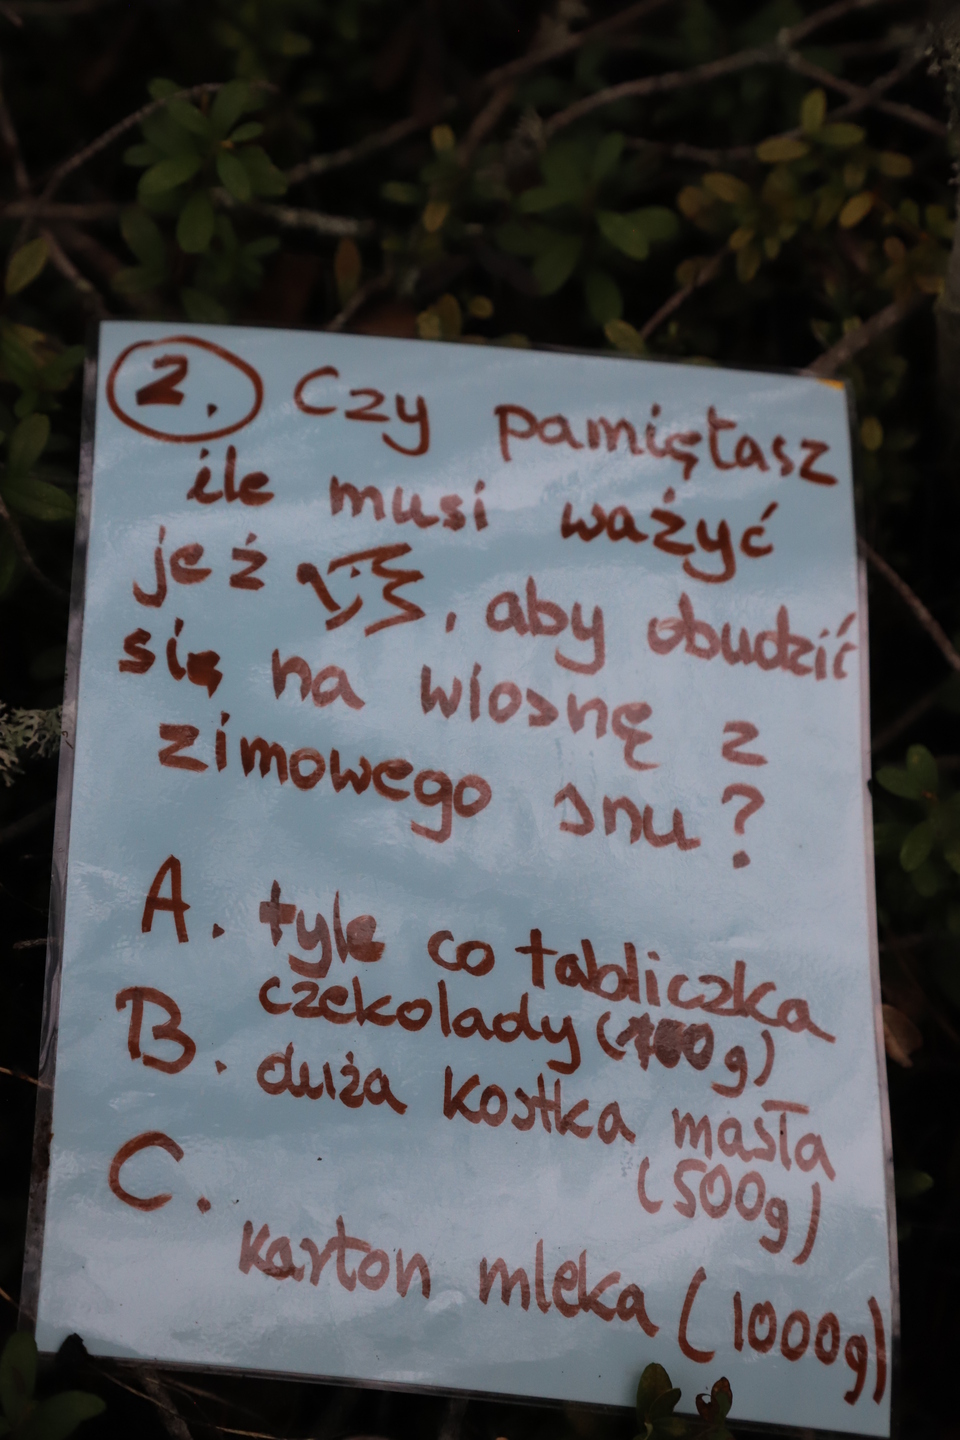 2. Czy pamiętasz
ile musi ważyć
jeż , aby obudzić
się na wiosnę z
zimowego snu?
A. tyle co tabliczka
czekolady (100g)
B. duża kostka masła
(500g)
C.
karton mleka (1000g)